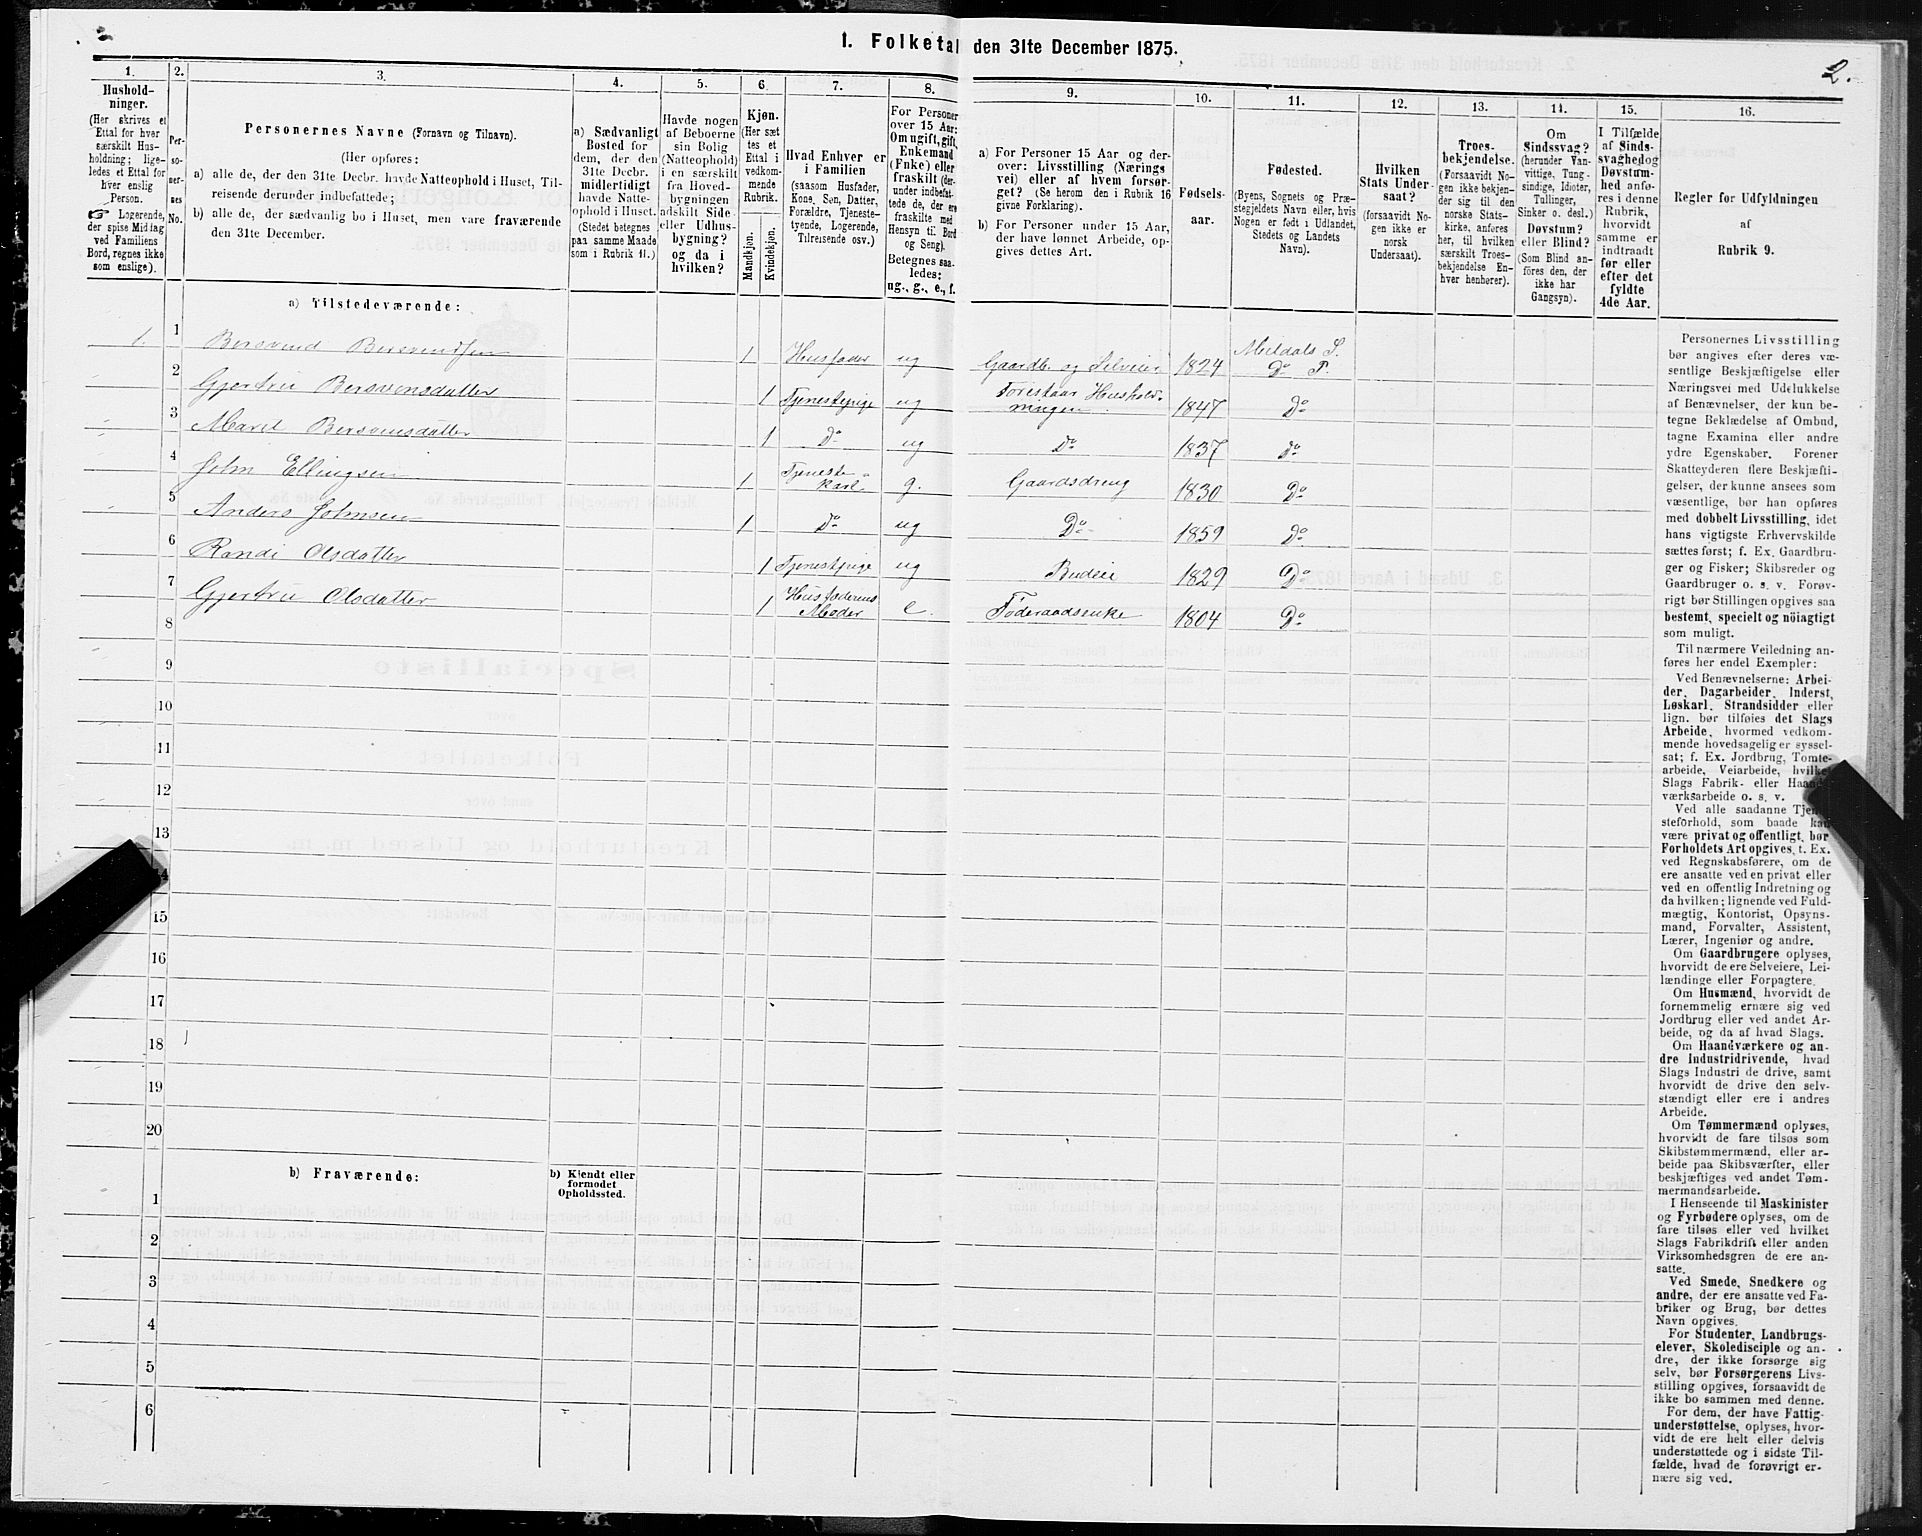 1. Folketal den 31te December 1875.
2.
1.
Hushold-
ninger.
(Her skrives et
Ettal for hver
særskilt Hus-
holdning; lige-
ledes et Ettal for
hver enslig
Person.
☞ Logerende,
der spise Middag
ved Familiens
Bord, regnes ikke
som enslige).
2.
Per-
so-
ner-
nes
No.
3.
Personernes Navne (Fornavn og Tilnavn).
(Her opføres:
a) alle de, der den 31te Decbr. havde Natteophold i Huset, Til-
reisende derunder indbefattede;
b) alle de, der sædvanlig bo i Huset, men vare fraværende
den 31te December.
4.
a) Sædvanligt
Bosted for
dem, der den
31te Decbr.
midlertidigt
havde Natte-
ophold i Huset.
(Stedet betegnes
paa samme Maade
som i Rubrik 11.)
5.
Havde nogen
af Beboerne
sin Bolig
(Natteophold)
i en særskilt
fra Hoved-
bygningen
adskilt Side-
eller Udhus-
bygning?
og da i
hvilken?
6.
Kjøn.
(Her sæt-
tes et
Ettal i
vedkom-
mende
Rubrik.
Mandkjøn.
Kvindekjøn.
7.
Hvad Enhver er
i Familien
(saasom Husfader,
Kone, Søn, Datter,
Forældre, Tjeneste-
tyende, Logerende,
Tilreisende osv.)
8.
For Personer
over 15 Aar:
Om ugift, gift,
Enkemand
(Enke) eller
fraskilt (der-
under indbefat-
tede de, der ere
fraskilte med
Hensyn til Bord
og Seng).
Betegnes saa-
ledes:
ug., g., e., f.
9.
a) For Personer 15 Aar og der-
over: Livsstilling (Nærings-
vei) eller af hvem forsør-
get? (Se herom den i Rubrik 16
givne Forklaring).
b) For Personer under 15 Aar,
der have lønnet Arbeide, op-
gives dettes Art.
10.
Fødsels-
aar.
11.
Fødested.
(Byens, Sognets og Præ-
stegjeldets Navn eller, hvis
Nogen er født i Udlandet,
Stedets og Landets
Navn).
12.
Hvilken
Stats Under-
saat?
(forsaavidt No-
gen ikke er
norsk
Undersaat).
13.
Troes-
bekjendelse.
(Forsaavidt No-
gen ikke bekjen-
der sig til den
norske Stats-
kirke, anføres
her, til hvilken
særskilt Troes-
bekjendelse En-
hver henhører).
14.
Om
Sindssvag?
(herunder Van-
vittige, Tung-
sindige, Idioter,
Tullinger,
Sinker o. desl.)
Døvstum?
eller Blind?
(Som Blind an-
føres den, der
ikke har
Gangsyn).
15.
I Tilfælde
af Sinds-
svaghed og
Døvstum-
hed anfø-
res i denne
Rubrik,
hvorvidt
samme er
indtraadt
før eller
efter det
fyldte
4de Aar.
16.
Regler for Udfyldningen
af
Rubrik 9.
a) Tilstedeværende:
1. 1 Bersvend Bersvendsen 1 Husfader ug Gaardb. og Selveier 1824 Meldals S. Do P.
2 Gjertru Bersvensdatter 1 Tjenestepige ug Forestaar Hushold-
ningen 1847 Do
3 Marit Bersvensdatter 1 Do ug Do 1837 Do
4 John Ellingsen 1 Tjeneste-
karl g. Gaardsdreng 1830 Do
5 Anders Johnsen 1 Do ug Do 1859 Do
6 Randi Olsdatter 1 Tjenestpige ug Budeie 1829 Do
7 Gjertru Olsdatter 1 Husfaderens
Moder e. Føderaadsenke 1804 Do
8
9
10
11
12
13
15
16
17
18
19
20
b) Fraværende:
b) Kjendt eller
formodet
Opholdssted.
1
2
3
4
5
6
Personernes Livsstilling
bør angives efter deres væ-
sentlige Beskjæftigelse eller
Næringsvei med Udelukkelse
af Benævnelser, der kun be-
tegne Beklædelse af Ombud,
tagne Examina eller andre
ydre Egenskaber. Forener
Skatteyderen flere Beskjæfti-
gelser, der kunne ansees som
væsentlige, bør han opføres
med dobbelt Livsstilling, idet
hans vigtigste Erhvervskilde
sættes først; f. Ex. Gaardbru-
ger og Fisker; Skibsreder og
Gaardbruger o. s. v. Forøv-
rigt bør Stillingen opgives saa
bestemt, specielt og nöiagtigt
som muligt.
Til nærmere Veiledning an-
føres her endel Exempler:
Ved Benævnelserne: Arbei-
der, Dagarbeider, Inderst,
Løskarl, Strandsidder eller
lign. bør tilføies det Slags
Arbeide, hvormed vedkom-
mende hovedsagelig er syssel-
sat; f. Ex. Jordbrug, Tomte-
arbeide, Veiarbeide, hvilket
Slags Fabrik- eller Haand-
værksarbeide o. s. v.
Ved alle saadanne Tjene-
steforhold, som baade kan
være privat og offentligt, bør
Forholdets Art opgives, t. Ex.
ved Regnskabsførere, om de
ere ansatte ved en privat eller
ved en offentlig Indretning og
da hvilken; lignende ved Fuld-
mægtig, Kontorist, Opsyns-
mand, Forvalter, Assistent,
Lærer, Ingeniør og andre.
Om Gaardbrugere oplyses,
hvorvidt de ere Selveiere, Lei-
lændinge eller Forpagtere.
Om Husmænd, hvorvidt de
fornemmelig ernære sig ved
Jordbrug eller ved andet Ar-
beide, og da af hvad Slags.
Om Haandværkere og an-
dre Industridrivende, hvad
Slags Industri de drive, samt
hvorvidt de drive den selv-
stændigt eller ere i andres
Arbeide.
Om Tømmermænd oplyses,
hvorvidt de fare tilsøs som
Skibstømmermænd, eller ar-
beide paa Skibsværfter, eller
beskjæftiges ved andet Tøm-
mermandsarbeide.
I Henseende til Maskinister
og Fyrbødere oplyses, om de
fare tilsøs eller ved hvilket
Slags Fabrikdrift eller anden
Virksomhedsgren de ere an-
satte.
Ved Smede, Snedkere og
andre, der ere ansatte ved Fa-
briker og Brug, bør dettes
Navn opgives.
For Studenter, Landbrugs-
elever, Skoledisciple og an-
dre, der ikke forsørge sig
selv, bør Forsørgerens Livs-
stilling opgives, forsaavidt de
ikke bo sammen med denne.
For dem, der have Fattig-
understøttelse, oplyses, hvor-
vidt de ere helt eller delvis
understøttede og i sidste Til-
fælde, hvad de forøvrigt er-
nære sig ved.